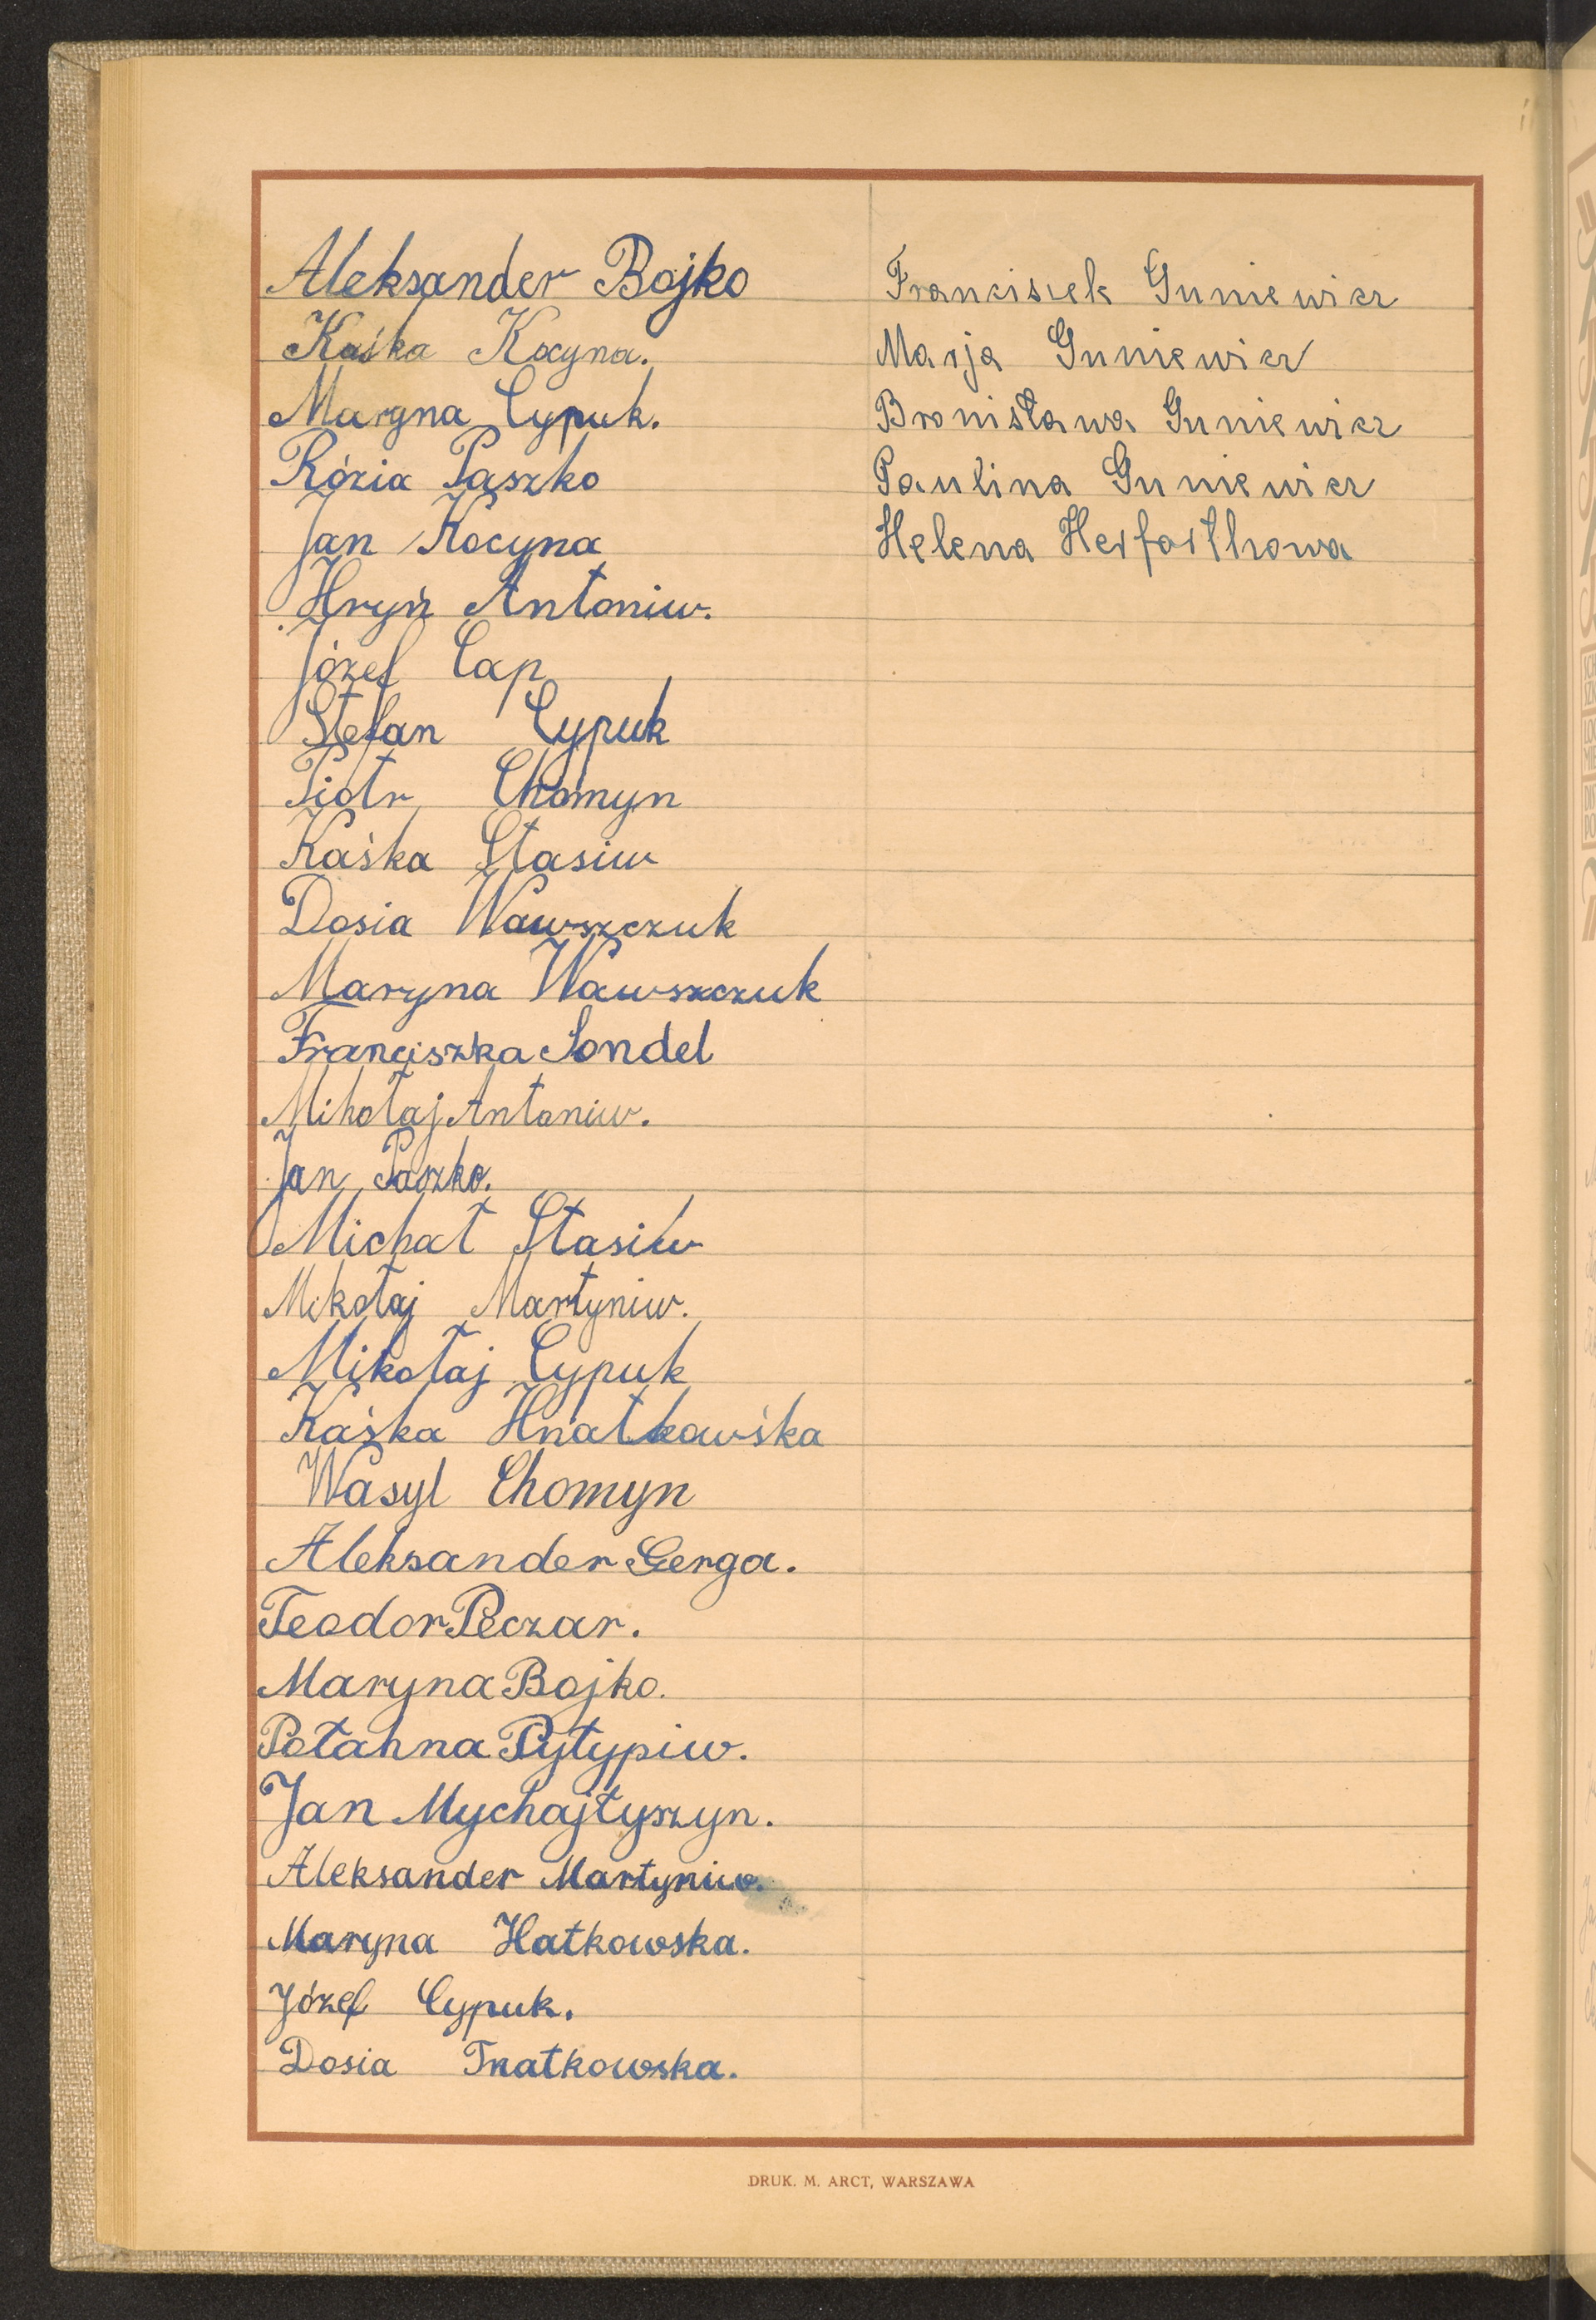 Aleksander Bojko
Kaśka Kocyna.
Maryna Cypuk.
Rózia Paszko
Jan Kocyna
Hryń Antoniw.
Józef Cap
Stefan Cypuk
Piotr Chomyn
Kaśka Stasiw
Dosia Wawszczuk
Maryna Wawszczuk
Franciszka Sondel
Mikołaj Antoniw.
Jan Paszko.
Michał Stasiw
Mikołaj Martyniw.
Mikołaj Cypuk
Kaśka Hnatkowśka
Wasyl Chomyn
Aleksander Gerga.
Teodor Peczar.
Maryna Bojko.
Połahna Pyłypiw.
Jan Mychajłyszyn.
Aleksander Martyniw.
Maryna Hatkowska.
Józef Cypuk.
Dosia Tnatkowska.
Franciszek Guniewicz
Marja Guniewicz
Bronisława Guniewicz
Paulina Guniewicz
Helena Herforthowa
DRUK. M. ARCT, WARSZAWA